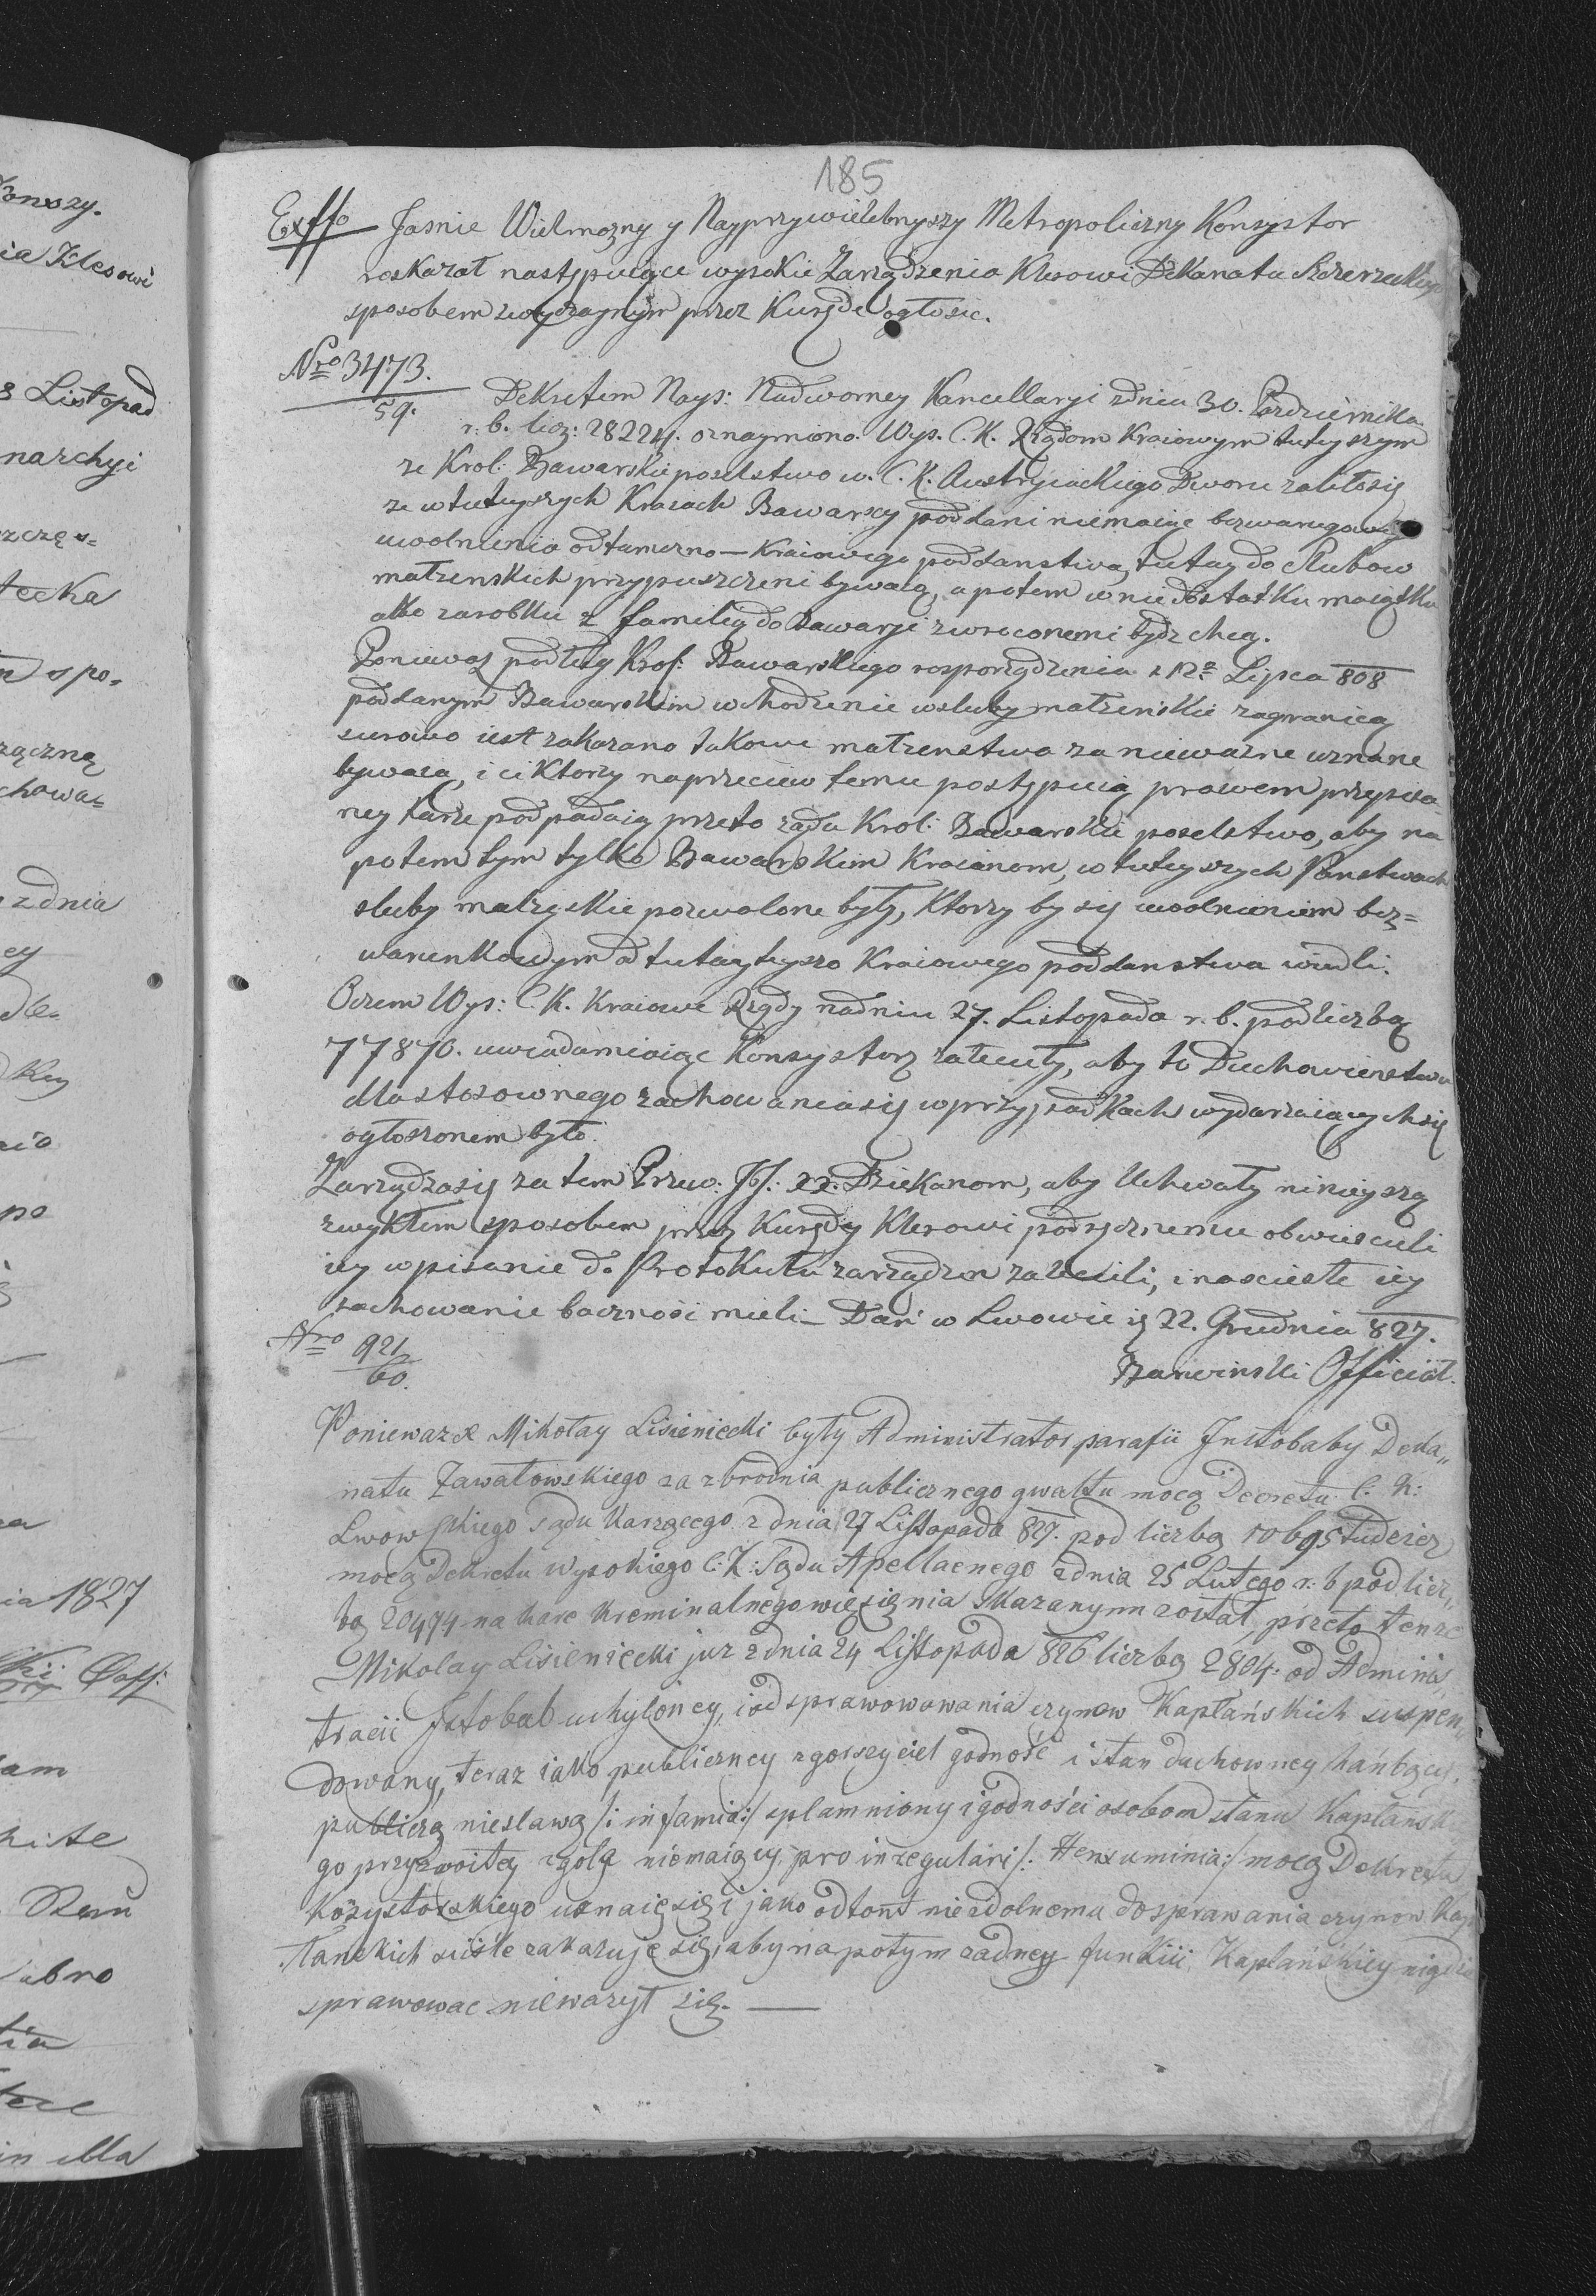 Konszy.
cia Klerowi
8 Listopad
narchyi
szczęs=
tecka
m spo=
rączną
chowa=
z dnia
ey
nia
po
nia 1827
am
hite
Run
abro
tia
in illa
185
Exffo Jasnie Wielmozny y Nayprzywielebnyszy Metropoliczny Konsystor
roskazał następuiące wysokie Zarządzenia Klerowi Dekanatu Szczerzeckiego
sposobem zwyczaynym przez Kurędę ogłosic.
Nro 3473.
59.
Dekretem Nays: Nadworney Kancellaryi z dnia 30. Pazdziernika
r. b. licz: 28224. oznaymiono Wys. C. K. Rządom Kraiowym tuteyszym
ze Krol: Bawarskie poselstwo w. C. K. Austryiackiego Dworu zaliłosię
ze w tuteyszych Kraiach Bawarscy poddani niemaiąc bezwarugowe
uwolnienia odtameczno-kraiowego poddanstwa, tutay do slubow
małzenskich przypuszczeni bywaią, a potem w niedostatku maiątku
albo zarobku z familią do Bawaryi zwroconemi bydz chcą.
Poniewaz podług Krol: Bawarskiego rosporządzenia z 12go Lipca 808
poddanym Bawarskim wchodzenie w sluby małzenskie zagranicą
surowo iest zakazano takowe małzenstwa za niewazne uznane
bywaią, i ci Ktorzy naprzeciw temu postępuią prawem przepisa
ney karze podpadaią przeto ząda Krol: Bawarskie poselstwo, aby na
potem tym tylko Bawarskim Kraianom, w tuteyszych Panstwach
sluby małzęskie pozwolone były, Ktorzy by się uwolnieniem bez=
warunkowym od tutayteyszo Kraiowego poddanstwa wiedli.
Oczem Wys: C. K. Kraiowe Rządy nadniu 27. Listopada r. b. podliczbą
77870. uwiadamiaiąc Konsystorz zaleciły, aby to Duchowienstwu
dla stosownego zachowaniasię w przypadkach wydarzaiącychsię
ogłoszonem było.
Zarządzasię zatem Przew. JJ: XX. Dziekanom, aby Uchwały ninieyszą
zwykłem sposobem przez Kurędy Klerowi podręcznemu obwiescili
iey wpisanie do Protokułu zarządzen zalecili, i nascisłe iey
zachowanie bacznosi mieli – Dan w Lwowie 22. Grudnia 827.
Barwinski Officiał.
Nro 921
60.
Poniewaz X Mikołay Lisieniecki były Administrator parafii Justobaby Deka„
natu Zawałowskiego za zbrodnia publicznego gwałtu mocą Decretu C. K:
Lwowskiego Sądu Karzącego z dnia 27 Listopada 827. pod liczbą 10695 tudziez
mocą Dekretu Wysokiego C: K: Sądu Apellacnego z dnia 25 Lutego r. b pod licz„
bą 20474 na kare kreminalnego więsięnia skazanym został, przeto tenze
Mikolay Lisieniecki juz z dnia 24 Listopada 826 liczbą 2804. od Adminis„
tracii Jstobab uchyloncy, i od sprawowowania czynow Kapłańskich suspen„
dowany, teraz iako publiczney zgorszyciel godność i stan duchowney hańbący,
publiczą niesławą /: infamia:/ splamniony i godności osobom stanu Kapłańskie
go przyzwoitey zgołą niemaiącey, pro inregulari /: Henxuminia:/ mocą Dekretu
Kozystorskiego uznaię się i jako odtont niezdolnemu do sprawania czynow Kap
łanskich sciśle zakazuję się, aby napotym zadney funkiii Kapłańskiey nigdzie
sprawowac niewazył się. —